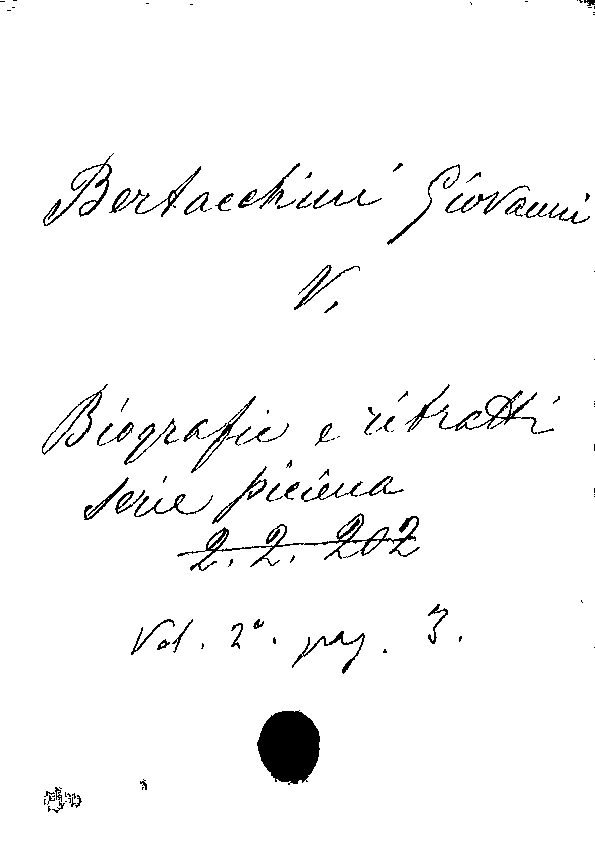 Bertacchini Giovanni
V.
Biografie e ritratti
serie picena
2. 2. 202
Vol. 2º. pag. 3.